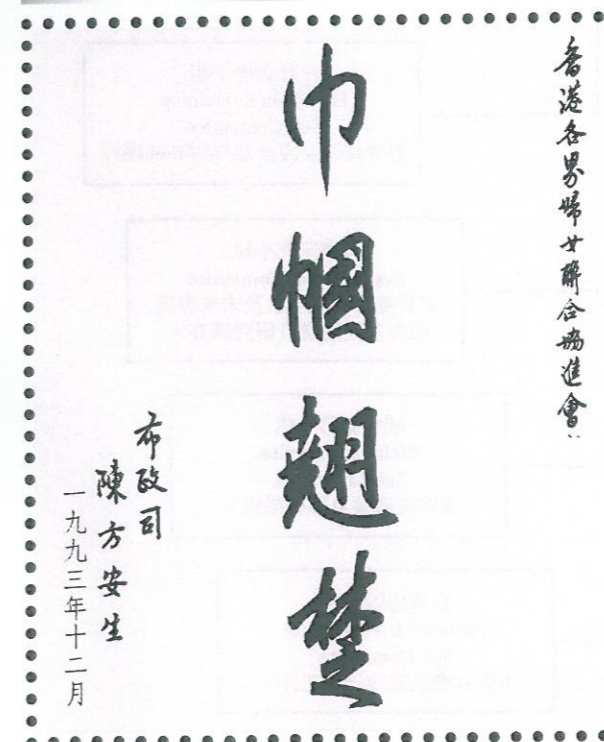 香港各界婦女聯合協進會：
巾幗翹楚
布政司
陳方安生
一九九三年十二月